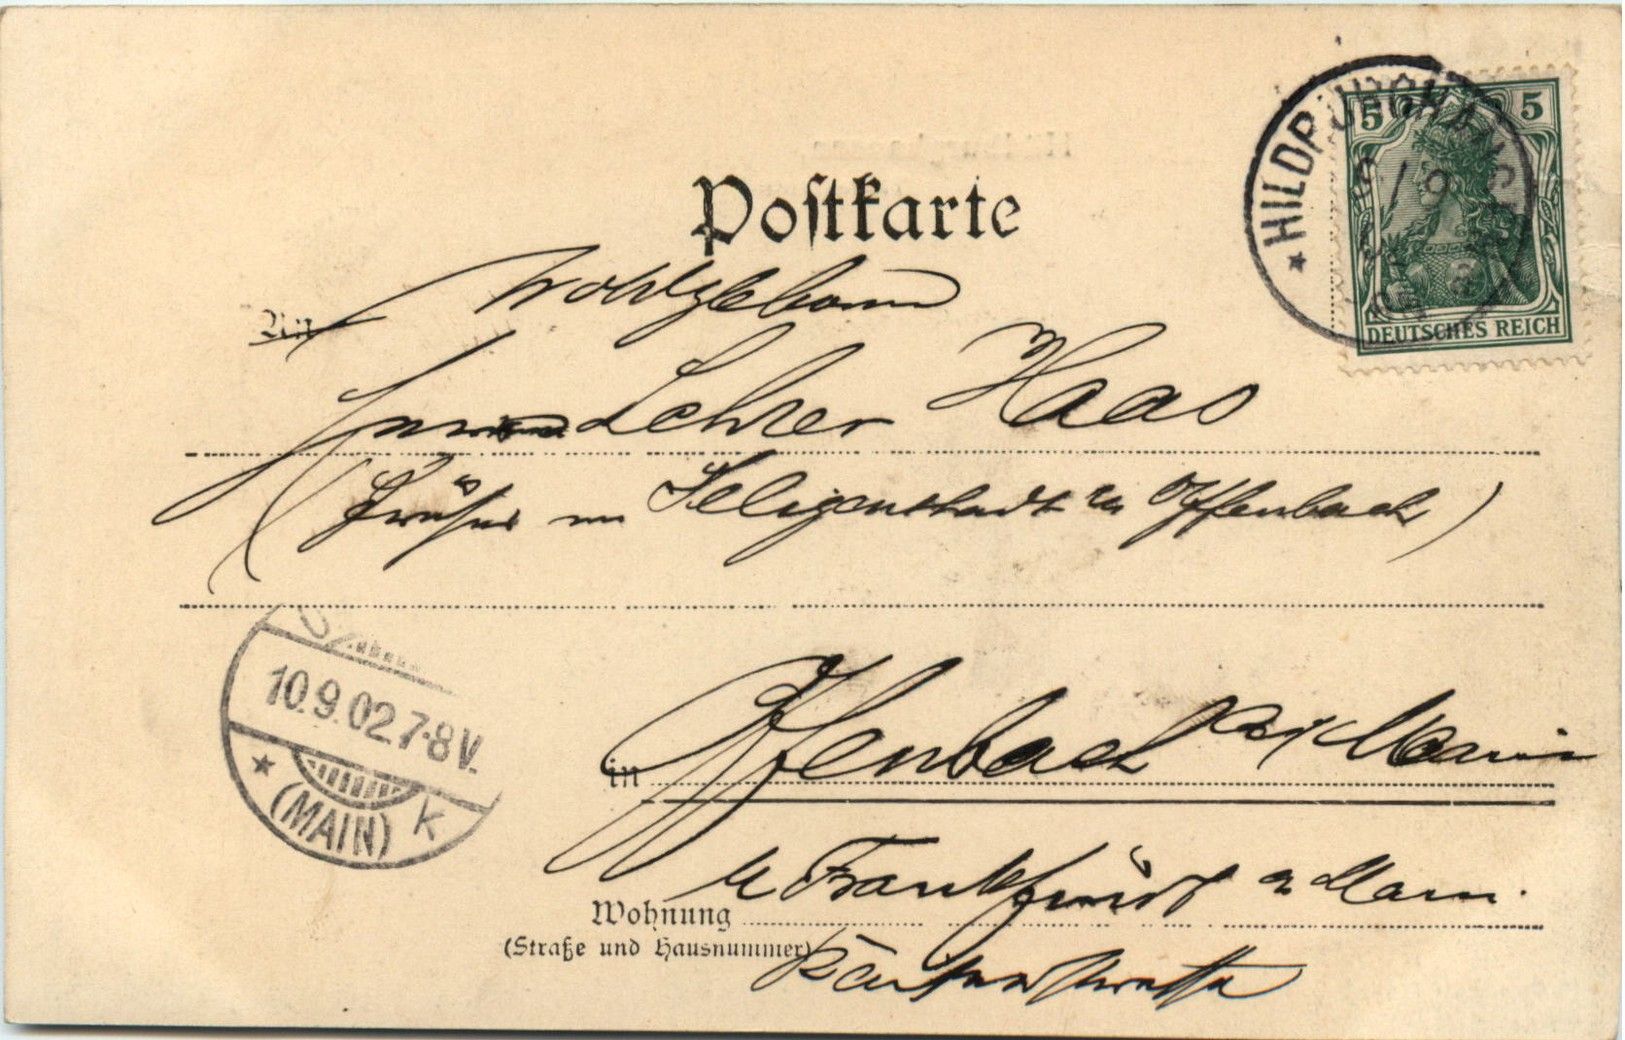 Postkarte
An Wohlgeborn
Herrn Lehrer Haas
(früher in Seligenstadt Offenbach)
in Offenbach Main
Frankfurt a Main.
Wohnung
(Straße und Hausnummer)
5 5
DEUTSCHES REICH
10.9.02.7-8V.
(MAIN) K